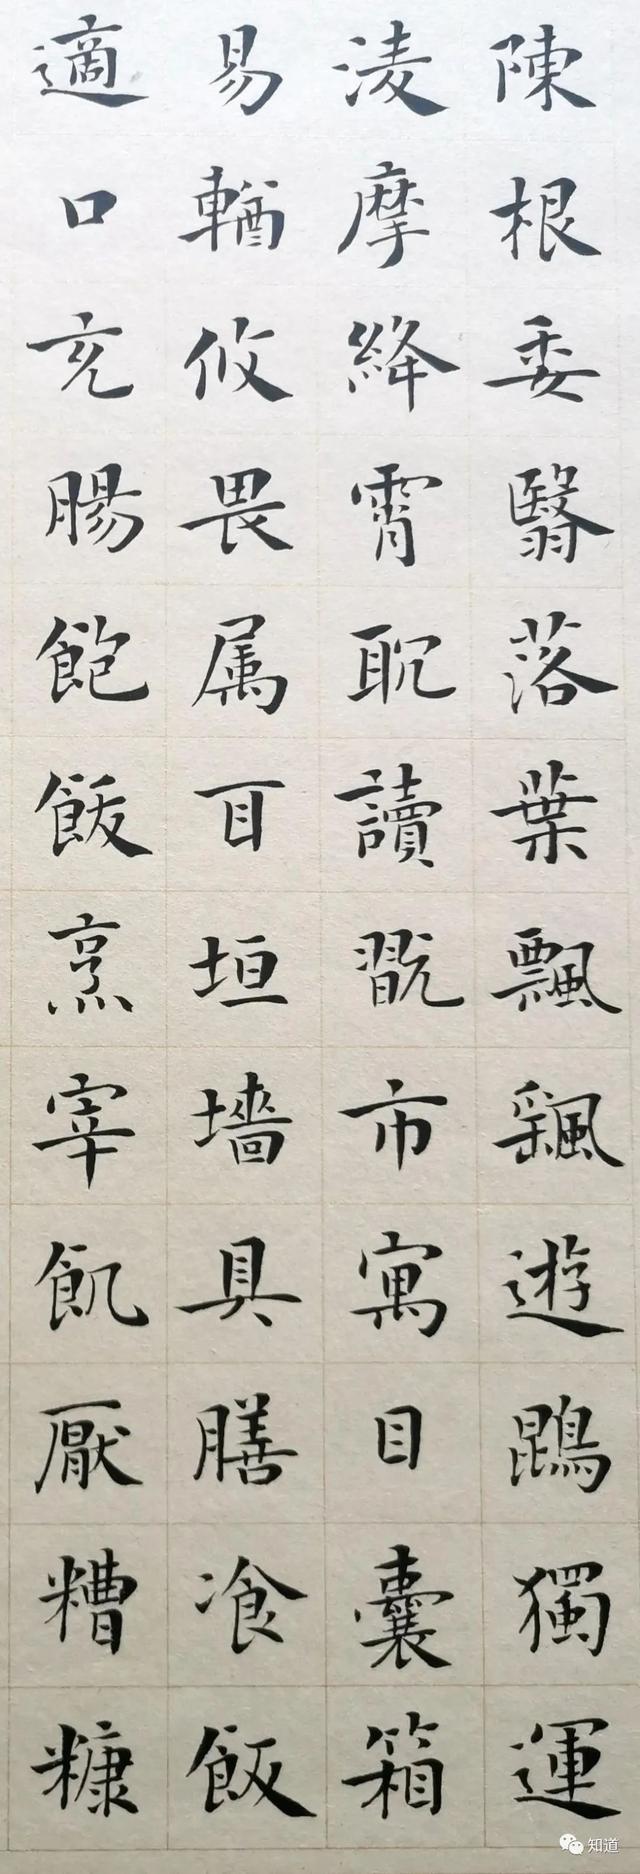 陳根委翳落葉飄飖遊鵾獨運
淩摩絳霄耽讀翫市寓目囊箱
易輶攸畏属耳垣墻具膳飡飯
適口充腸飽飫烹宰飢厭糟糠
知道